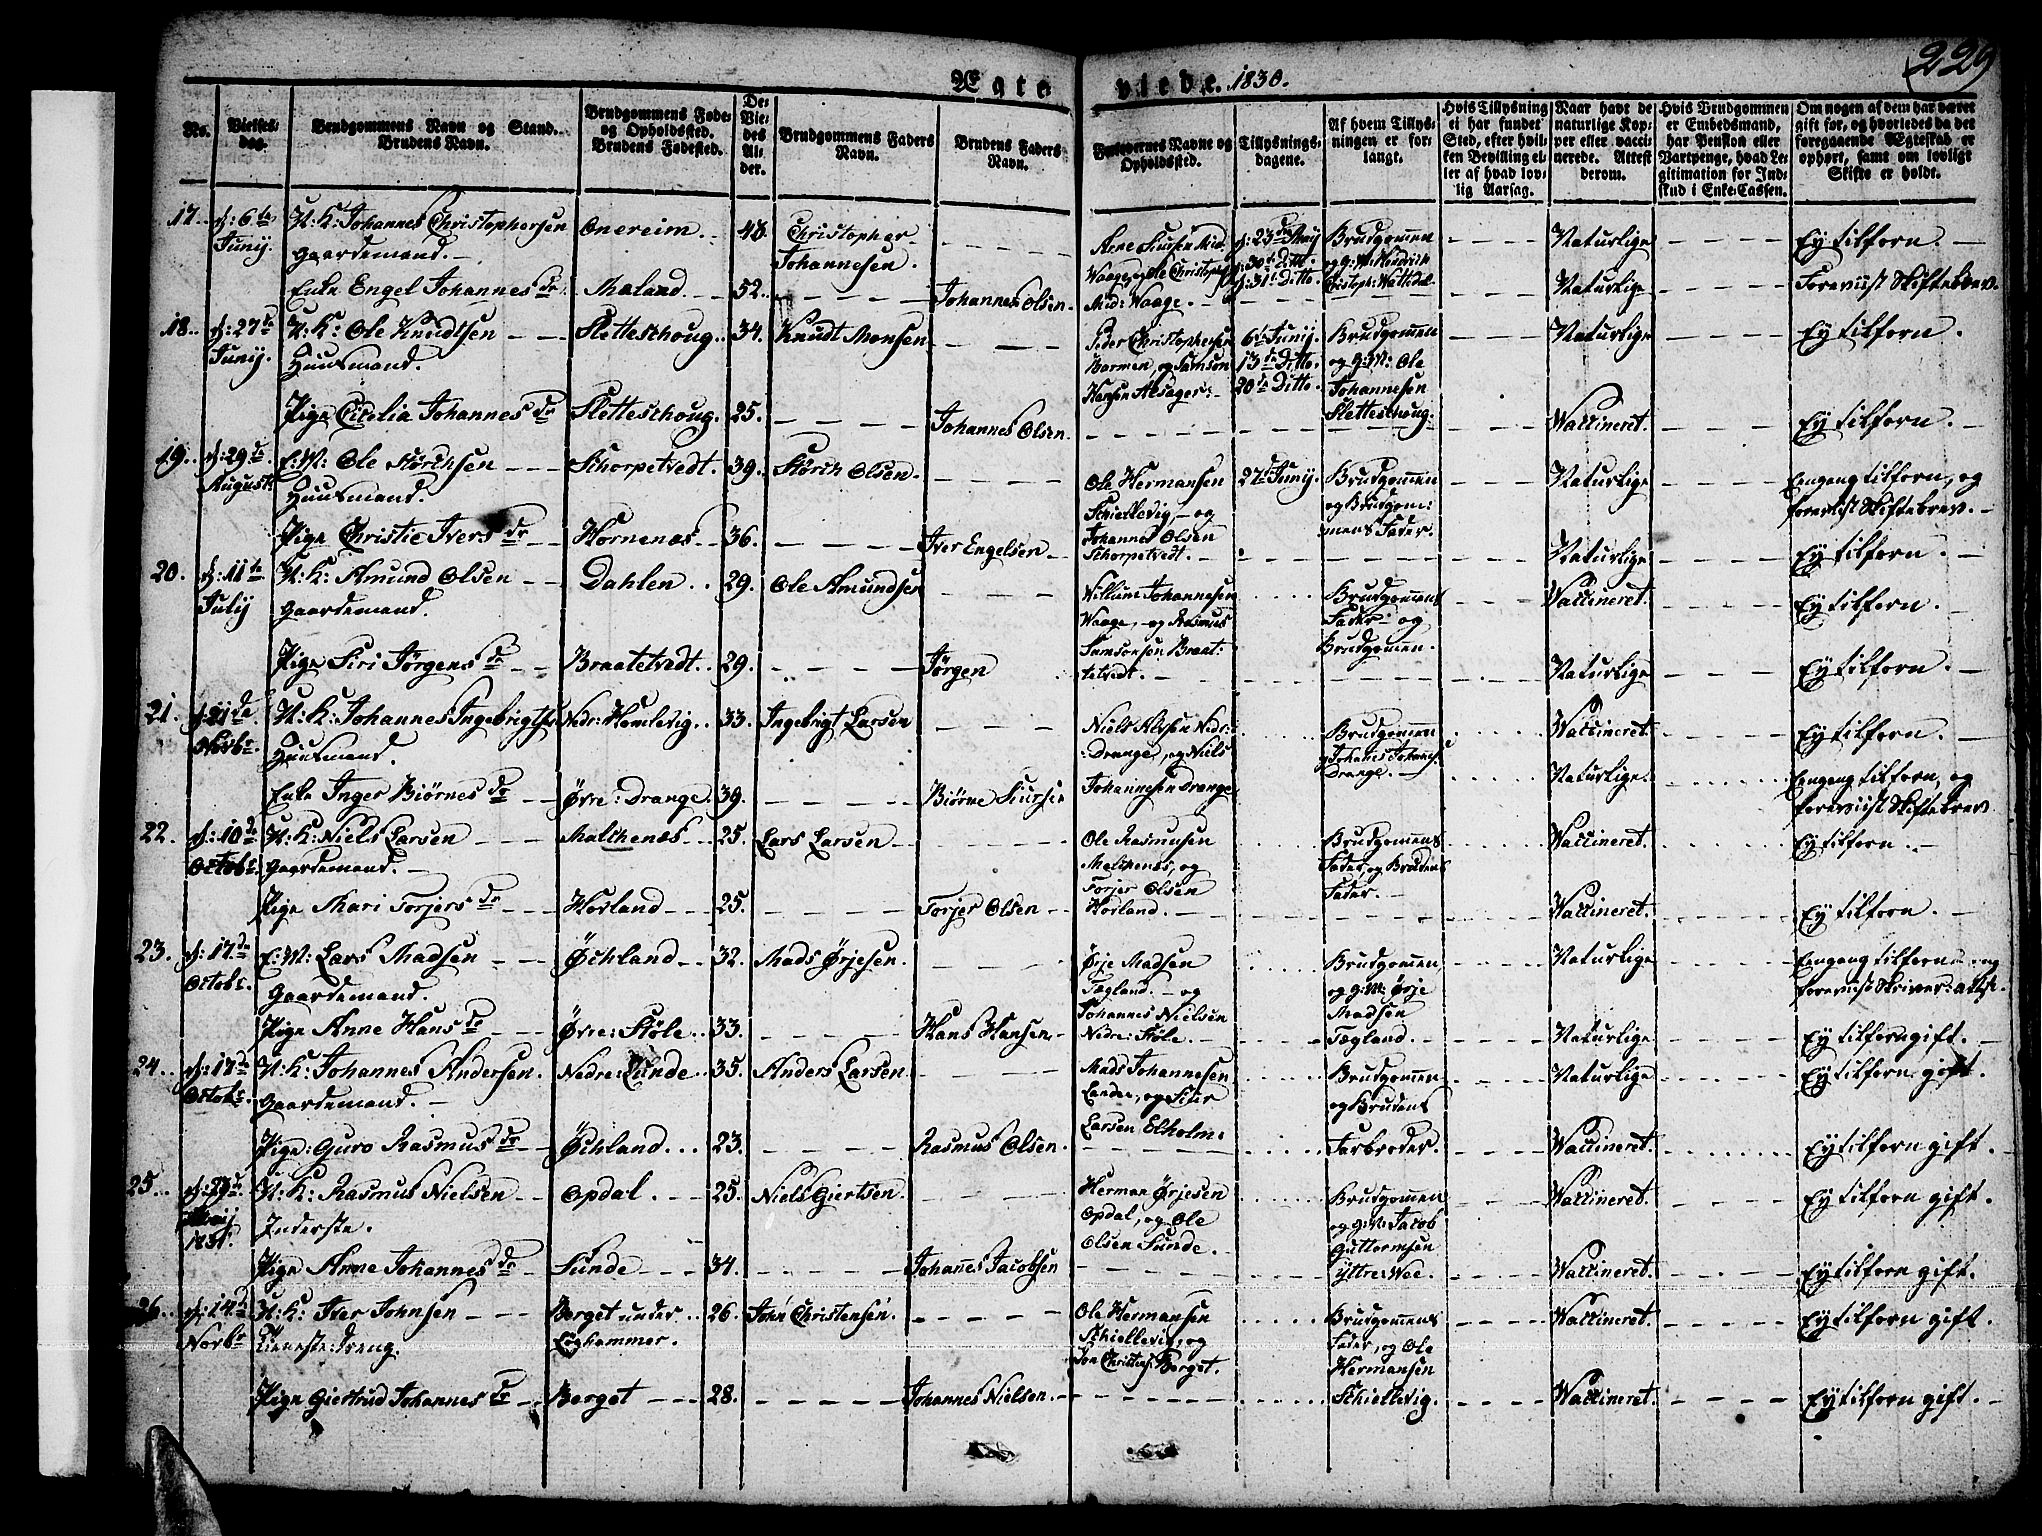 229
Ægte viede. 1830.
No.
Vielses-dag.
Brudgommens Navn og Stand. Brudens Navn.
Brudgommens Føde- og Opholdssted. Brudens Fødested.
De Viedes Alder.
Brudgommens Faders Navn.
Brudens Faders Navn.
Forlovernes Navne og Opholdssted.
Tillysnings-dagene.
Af hvem Tillysningen er forlangt.
Hvis Tillysning ei har fundet Sted, efter hvilken Bevilling eller af hvad lovlig Aarsag.
Naar havt de naturlige Kopper eller vaccinerede. Attest derom.
Hvis Brudgommen er Embedsmand, har Pension eller Vartpenge, hvad Legitimation for Indskud i Enke-Cassen.
Om nogen af dem har været gift før, og hvorledes da det foregaaende Ægteskab er ophørt, samt om lovligt Skifte er holdt.
17. d: 6te Junij U: K: Johannes Christophersen Onereim. 43. Christopher Johannesen. d: 23de Maij Brudgommen Naturlige Ey tilforn.
Gaardemand. Waage og Ole Christophs d: 30te Ditto. d: 31te Ditto.
Enke Engel Johannes dr. Maland 52. Johannes Olsen. Mid: Waage. Naturlige Foreviist Skiftebrev.
18. d: 27de Junij. U: K: Ole Knudtsen Sletteschoug. 34. Knudt Monsen Peder Christophersen 6te Junij. Brudgommen Naturlige Ey tilforn.
Huusmand. Barmen, og Samson 13de Ditto. og G: M: Ole
Hansen Alsager: 20de Ditto. Johannesen
Pige Cicelia Johannes dr Sletteschoug. 25. Johannes Olsen. Sletteschoug. Waccineret. Ey tilforn.
19. d: 29de August: E: M: Ole Størchsen Schorpetvedt. 39. Størch Olsen. Ole Hermansen 27de Junij. Brudgommen Naturlige Eengang tilforn, og
Huusmand. Schiellevig, og og Brudgommens Fader. foreviist Skiftebrev.
Pige Christie Ivers dr Hornenæs 36. Iver Engelsen Johannes Olsen Schorpetvedt. Naturlige Ey tilforn.
20. d: 11te July U: K: Amund Olsen Dahlen. 29. Ole Amundsen Willum Johannesen Brudgommens Waccineret. Ey tilforn.
Gaardemand. Waage, og Rasmus Fader og
Samsonsen Braat: Brudgommen.
Pige Siri Jørgens dr Braatetvedt. 29. Jørgen tetvedt. Naturlige Ey tilforn.
21. d: 21de Novbr. U: K: Johannes Ingebrigts. Nedre: Hamlevig. 33. Ingebrigt Larsen Niels Nedre: Brudgommen Waccineret. Ey tilforn.
Huusmand. Drange, og Niels og Johannes Johannes:
Enke Inger Biørnes dr Øvre: Drange. 39. Biørne Siursen Johannesen Drange Drange. Naturlige. Eengang tilforn, og foreviist Skiftebrev
22. d: 10de Octobr. U: K: Niels Larsen Malchenæs 25. Lars Larsen Ole Rasmusen Brudgommens Waccineret. Ey tilforn.
Gaardemand. Malchenæs, og Fader, og Brudens
Pige Mari Torjers dr Hovland 25. Torjer Olsen Torjer Olsen Hovland. Fader. Waccineret. Ey tilforn.
23. d: 17de Octobr. E: M: Lars Madsen Øchland 32. Mads Ørjesen. Ørje Madsen Brudgommen Naturlige Eengang tilforn og
Gaardemand. Tægland. og og G: M: Ørje foreviist Skriver: attest.
Johannes Nielsen Madsen
Pige Anne Hans dr Øvre: Støle 33. Hans Hansen Nedre: Støle. Tægland. Naturlige Ey tilforn gift.
24. d: 17de Octobr. U: K: Johannes Andersen. Nedre: Lunde 35. Anders Larsen Mads Johannesen Brudgommen Naturlige Ey tilforn gift.
Gaardemand. Lande, og Siur og Brudens
Pige: Guro Rasmus dr Øchland. 23. Rasmus Olsen. Larsen Elholm: Farbroder. Waccineret. Ey tilforn gift.
25. d: Maij 1831. U: K: Rasmus Nielsen Opdal. 25. Niels Giertsen. Herman Ørjesen Brudgommen Waccineret. Ey tilforn gift.
Inderste. Opdal, og Ole og G: M: Jacob
Olsen Sunde. Guttormsen
Pige Anne Johannes dr Sunde 34. Johannes Jacobsen Yttre: Wee. Waccineret. Ey tilforn gift.
26. d: 14de Novbr U: K: Iver Johnsen Berget under 26. John Christensen. Ole Hermansen Brudgommens Waccineret. Ey tilforn gift.
Tieneste: dreng. Eeghammer. Schiellevig, og Fader, og Ole
Jon Christens: Berget. Hermansen
Pige Giertrud Johannes dr Berget 28. Johannes Nielsen. Schiellevig. Waccineret. Ey tilforn gift.